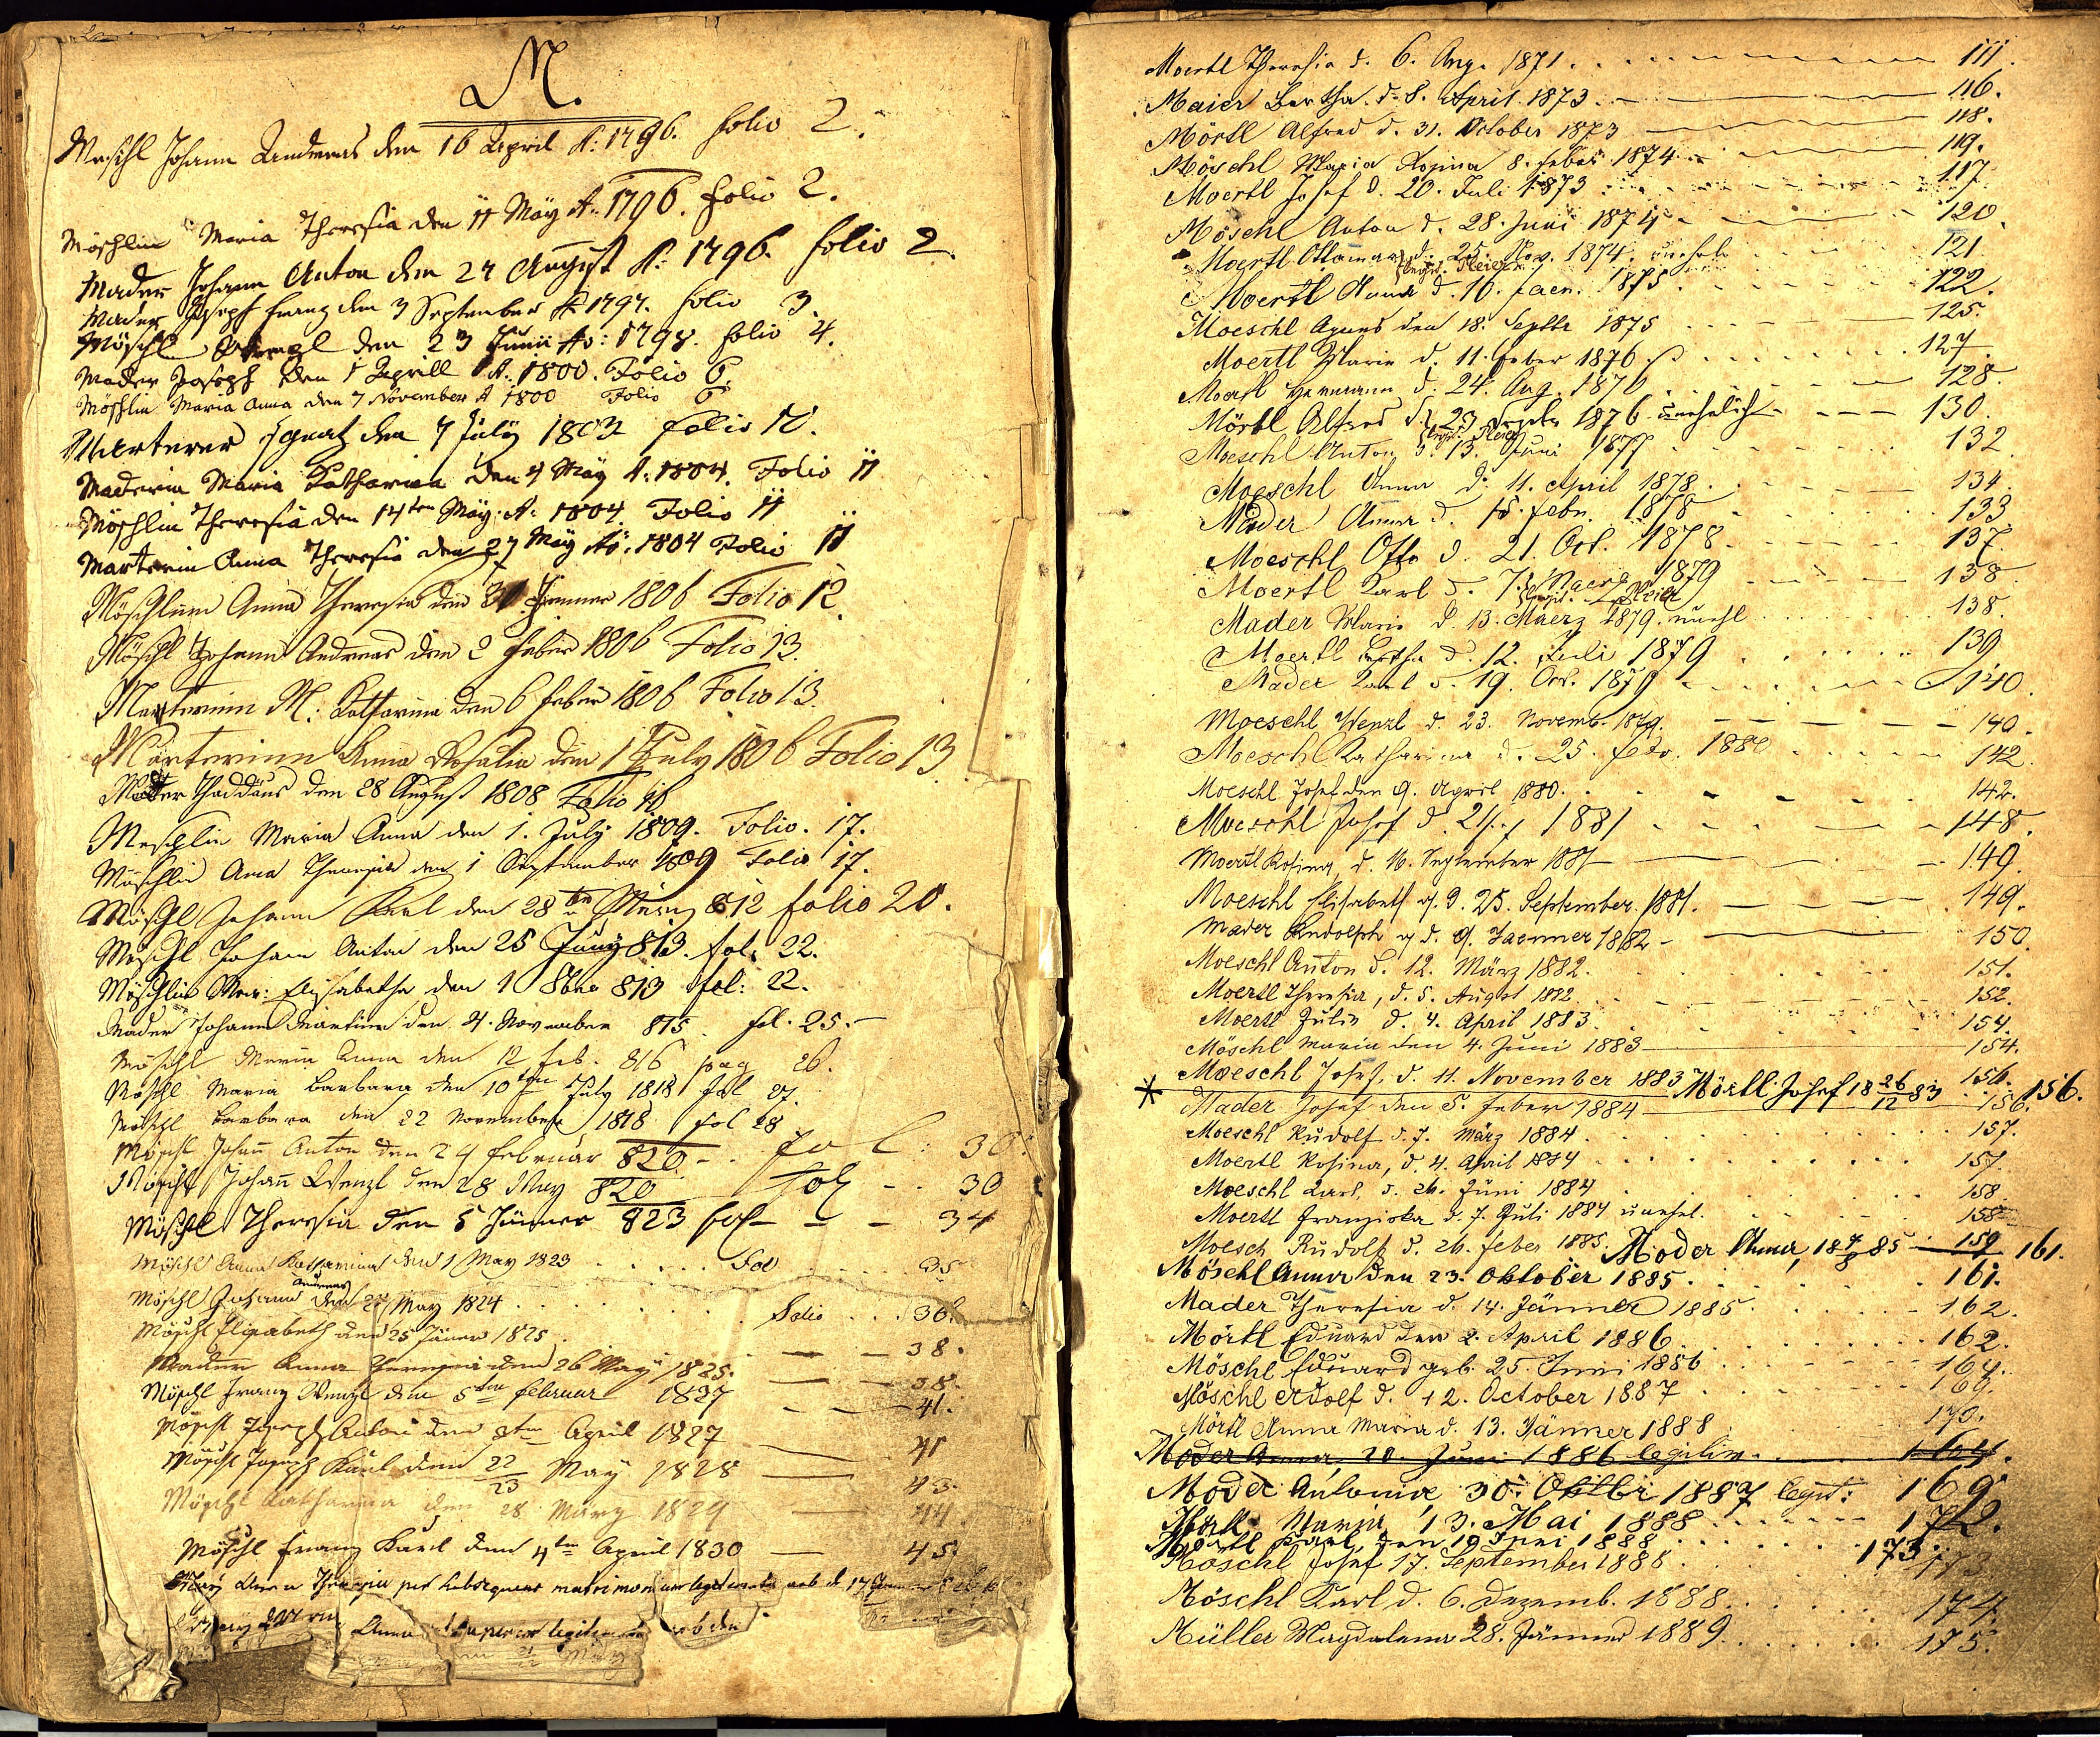 M.
Meschl Johann Andreas den 16 April A: 1796. folio 2.
Möschlin Maria Theresia den 11 Maÿ A: 1796. folio 2.
Mader Johann Anton den 27 August A: 1796. folio 2.
Mader Joseph Franz den 3 September A 1797. folio 3.
Möschl Wenzl den 23 Junii Ao: 1798. folio 4.
Mader Joseph den 1 Aprill A: 1800. Folio 6.
Möschlin Maria Anna den 7 November A 1800 Folio 6
Marterer Ignatz den 7 Julÿ 1803 folio 10.
Maderin Maria Katharina den 4 Maÿ A: 1804. Folio 11
Möschlin Theresia den 14ten Maÿ A: 1804 Folio 11
Marterin Anna Theresia den 27 Maÿ Ao: 1804 Folio 11
Möschlinn Anna Theresia den 30 Jenner 1806 Folio 12
Möschl Johann Andreas den 2 Feber 1806 Folio 13.
Marterinn M: Katharina den 6 Feber 1806 Folio 13.
Marterinn Anna Rosalia den 1 July 1806 Folio 13
Mader Thaddäus den 28 August 1808 Folio 16
Meschlin Maria Anna den 1. July 1809. Folio. 17.
Möschlin Anna Theresia den 1 September 809 Folio 17.
Möschl Johann Karl den 28ten März 812 folio 20.
Möschl Johann Anton den 25 Juny 813. fol: 22.
Möschlin Mar: Elisabetha den 1 8ber 813 fol: 22.
Mader Johann Martin den 4. November 815. fol. 25.
Möschl Maria Anna den 12 Feb. 816 pag 26.
Möschl Maria Barbara den 10ten July 1818 fol 27.
Möschl Barbara den 22 November 1818 fol 28
Möschl Johann Anton den 24 Februar 820 - . fol: 30.
Möschl Johann Wenzl den 28 May 820 fol - 30
Möschl Theresia den 5 Jänner 823 fol - - - 34
Möschl Anna Katharina den 1 May 1823 . . . . . Fol . . . . 35
Möschl Johann Andreas den May 1824 . . . . . . Folio . . . 36
Möschl Elisabeth den 25 Jäner 1825 . — — 38.
Mader Anna Theresia den 26 May 1825. — — 38.
Möschl Franz Wenzl den 5ten Februar 1827 — — 41.
Möschl Joseph Anton den 8ten April 1827 — 41
Möschl Joseph Karl den 22/23 May 1828 — 43.
Möschl Katharina den 28 März 1829 — 44
Möschl Franz Karl den 4ten April 1830 — 45.
Anna Theresia per subsequens matrimonium legitimata nob d. 17
Anna legitim nob den
Moertl Theresia d. 6. Aug. 1871. . . — — — 111.
Maier Bertha. d. 8. April 1873. — — 116.
Mörtl Alfred d. 31. October 1873 — — 118.
Möschl Maria Rosina 8. Feber 1874. — 119.
Moertl Josef d. 20. Juli 1873 . . . . . 117.
Möschl Anton d. 28. Juni 1874 — 120.
Moertl Ottomar d. 25. Nov. 1874. unehel. . . . 121
Moertl Anna d. 10. Jaen. 1875 . . . . . 122.
Moeschl Agnes den 18. Septbr 1875 . . . 125.
Moertl Marie d. 11. Feber 1876 . . . . . 127.
Moertl Hermann d. 24. Aug. 1876 . . . 128.
Mörtl Alfred d. 23 Septbr 1876 unehelich — — 130.
Moeschl Anton d. 13. Juni 1877 . . . . 132
Moeschl Anna d. 11. April 1878. . . . 134.
Mader Anna d. 15. Febr. 1878 . . . . 133
Moeschl Otto d. 21. Oct. 1878 . . . . 137.
Moertl Karl d. 7. Maerz 1879 . . . . 138
Mader Marie d. 13. Maerz 1879. unehl . . . . 138.
Moertl Bertha d. 12. Juli 1879 . . . . 139
Mader Karl d. 19. Oct. 1879 . . . . 140.
Moeschl Wenzl d. 23. Novemb. 1879. — — — 140.
Moeschl Katharina d. 25. Febr. 1880 . . . 142.
Moeschl Josef den 9. April 1880. . . . 142.
Moeschl Josef d. 21. 7 1881 . . . 148.
Moertl Rosina, d. 16. September 1881 — 149.
Moeschl Elisabeth d. 25. September 1881. — 149.
Mader Rudolph d. 9. Jaenner 1882 — 150.
Moeschl Anton d. 12. März 1882. . . . 151.
Moertl Theresia, d. 5. August 1882 . . . 152.
Moertl Julie d. 4. April 1883 . . . 154.
Möschl Maria den 4. Juni 1883 — 154.
Moeschl Josef, d. 11. November 1883 156.
* Mörtl Josef 18 26/12 83 . . 156.
Mader Josef den 5. Feber 1884 — 156.
Moeschl Rudolf d. 7. März 1884. . . . 157.
Moertl Rosina, d. 4. April 1884 . . . 157.
Moeschl Karl, d. 26. Juni 1884 . . . 158.
Moertl Franziska d. 7. Juli 1884 unehel. . . . 158
Moesch Rudolf d. 26. Feber 1885. 159
Moder Anna, 18 4/8 85 — 161.
Möschl Anna den 23. Oktober 1885. . . . 161.
Mader Theresia d. 14. Jänner 1885. . . . 162.
Mörtl Eduard den 2. April 1886 . . . 162.
Möschl Eduard geb. 25. Juni 1886 . . . 164.
Möschl Adolf d. 12. October 1887 . . . 169.
Mörtl Anna Maria d. 13. Jänner 1888 . . . 170.
Moder Anna, 20. Juni 1886 legitim. . . . 164.
Moder Antonie 30. Oktbr 1887 legit: 169
Mörtl Maria, 13. Mai 1888 . . . . 172.
Moertl Karl, den 19 Juni 1888 . . . . 173.
Möschl Josef 17. September 1888 . . . 173
Möschl Karl d. 6. Dezemb. 1888. . . . 174.
Müller Magdalena 28. Jänner 1889. . . . 175.